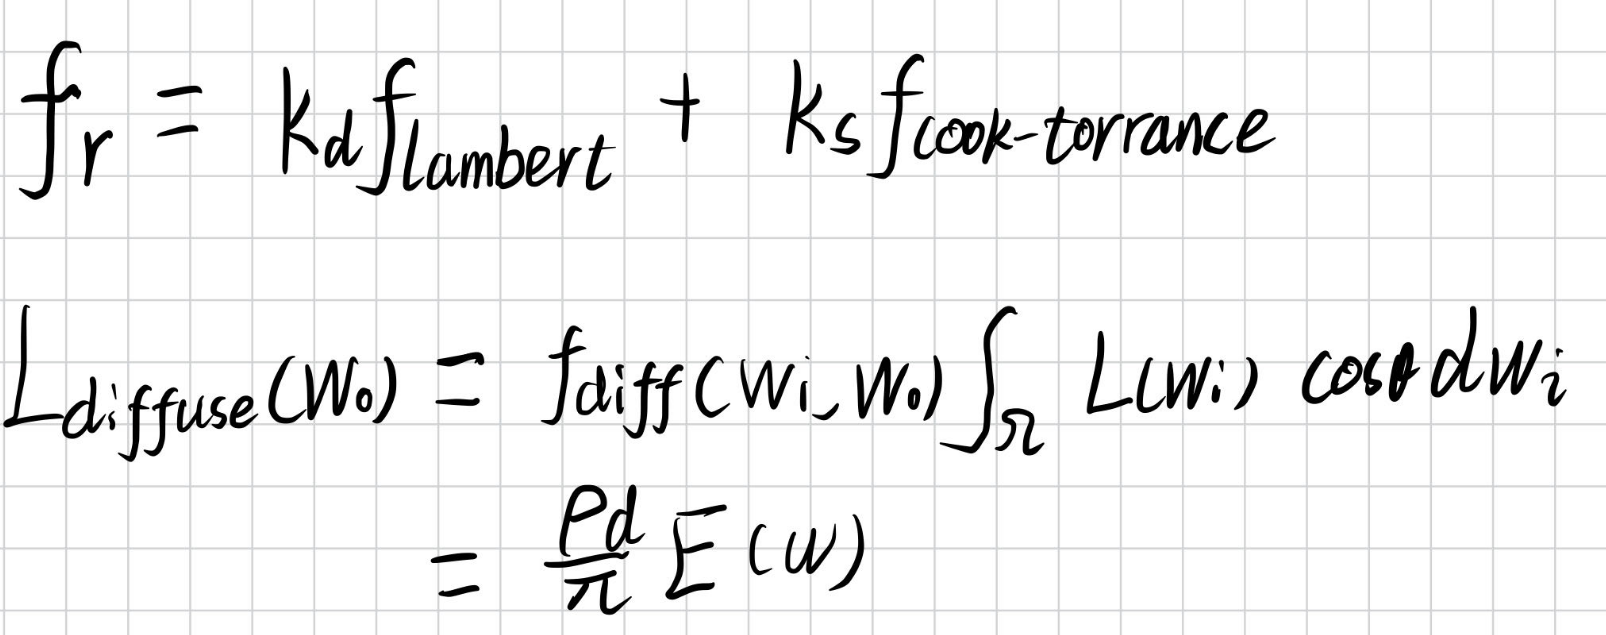 f_r = k_d f_{lambert} + k_s f_{cook-torrance}
L_{diffuse}(W_o) = f_{diff}(W_i, W_o) ∫_Ω L(W_i) cosθ dW_i
= \frac{ρ_d}{π} E(W)